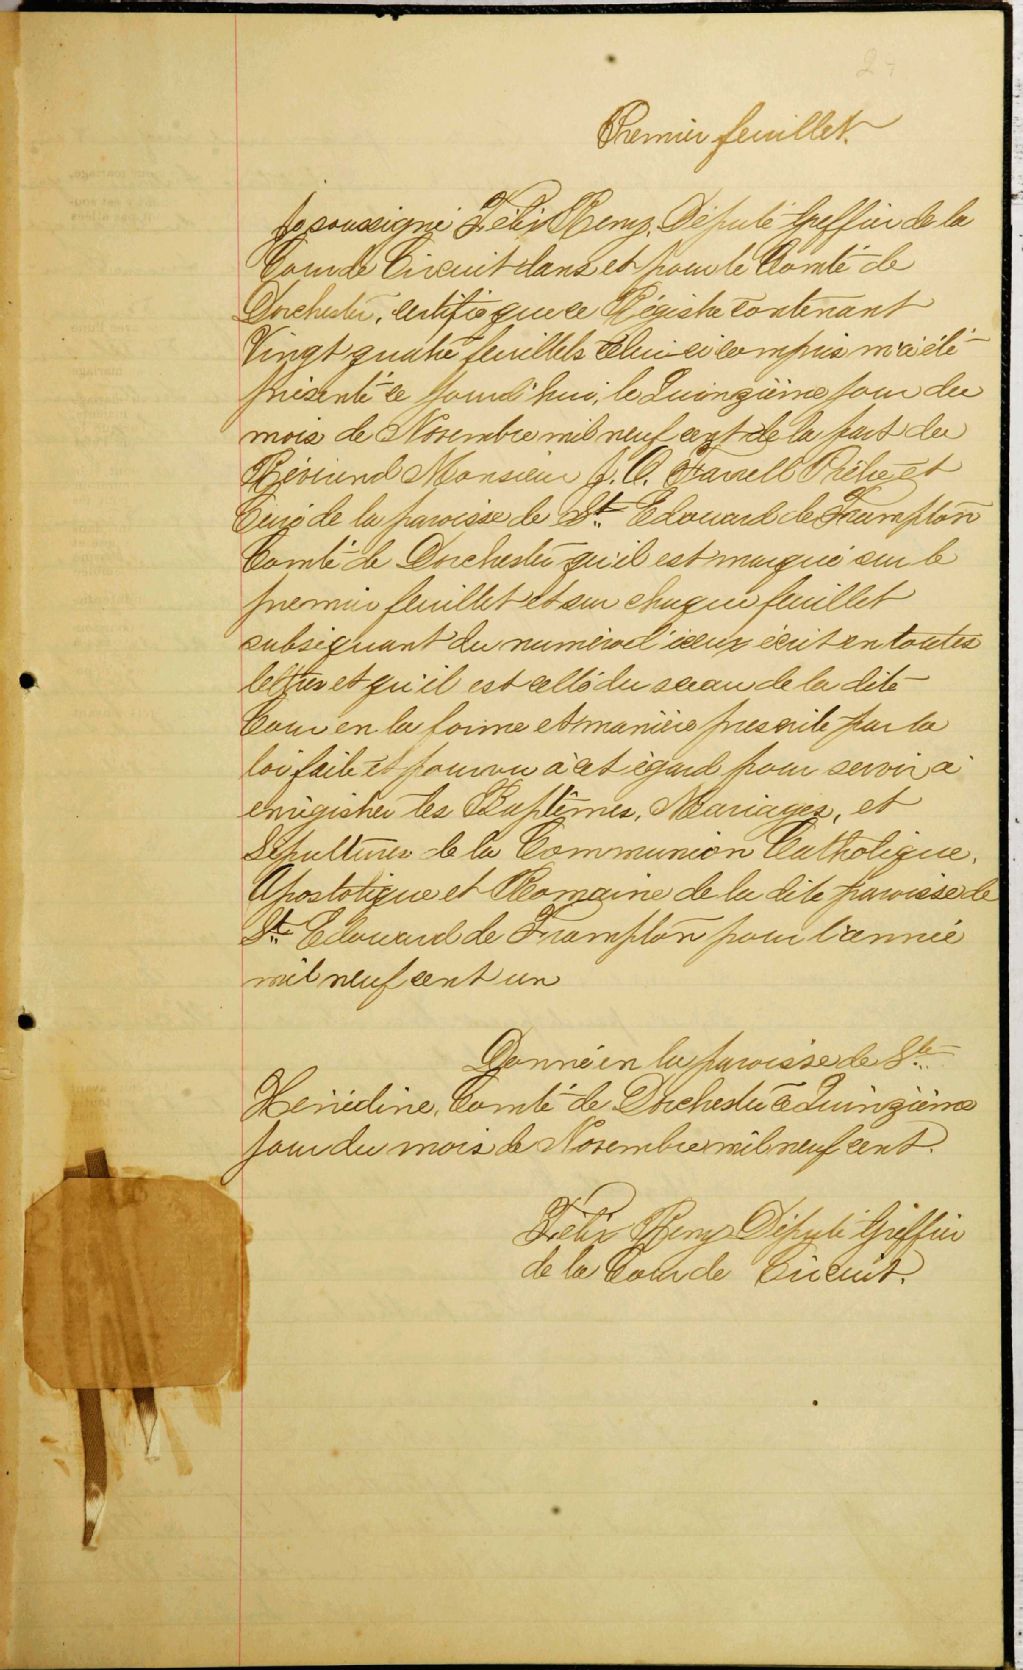 Premier feuillet.
Je soussigné Félix Remy, Député Greffier de la
Cour de Circuit dans et pour le Comté de
Dorchester, certifie que ce Régistre contenant
Vingt quatre feuillets celui-ci compris m'a été
présenté ce jourd'hui, le Quinzième jour du
mois de Novembre mil neuf cent de la part du
Révérend Monsieur J. O. Farrell Prêtre et
Curé de la paroisse de St. Edouard de Frampton
Comté de Dorchester qu'il est marqué sur le
premier feuillet et sur chaque feuillet
subséquant du numéro d'iceux écrit en toutes
lettres et qu'il est scellé du sceau de la dite
Cour en la forme et manière prescrite par la
loi faite et pourvu à cet égard pour servir à
enrégistrer les Baptêmes, Mariages, et
Sépultures de la Communion Catholique,
Apostolique et Romaine de la dite paroisse de
St. Edouard de Frampton pour l'année
mil neuf cent un
Donné en la paroisse de Ste.
Hénédine, Comté de Dorchester ce Quinzième
jour du mois de Novembre mil neuf cent.
Félix Remy Député Greffier
de la Cour de Circuit.